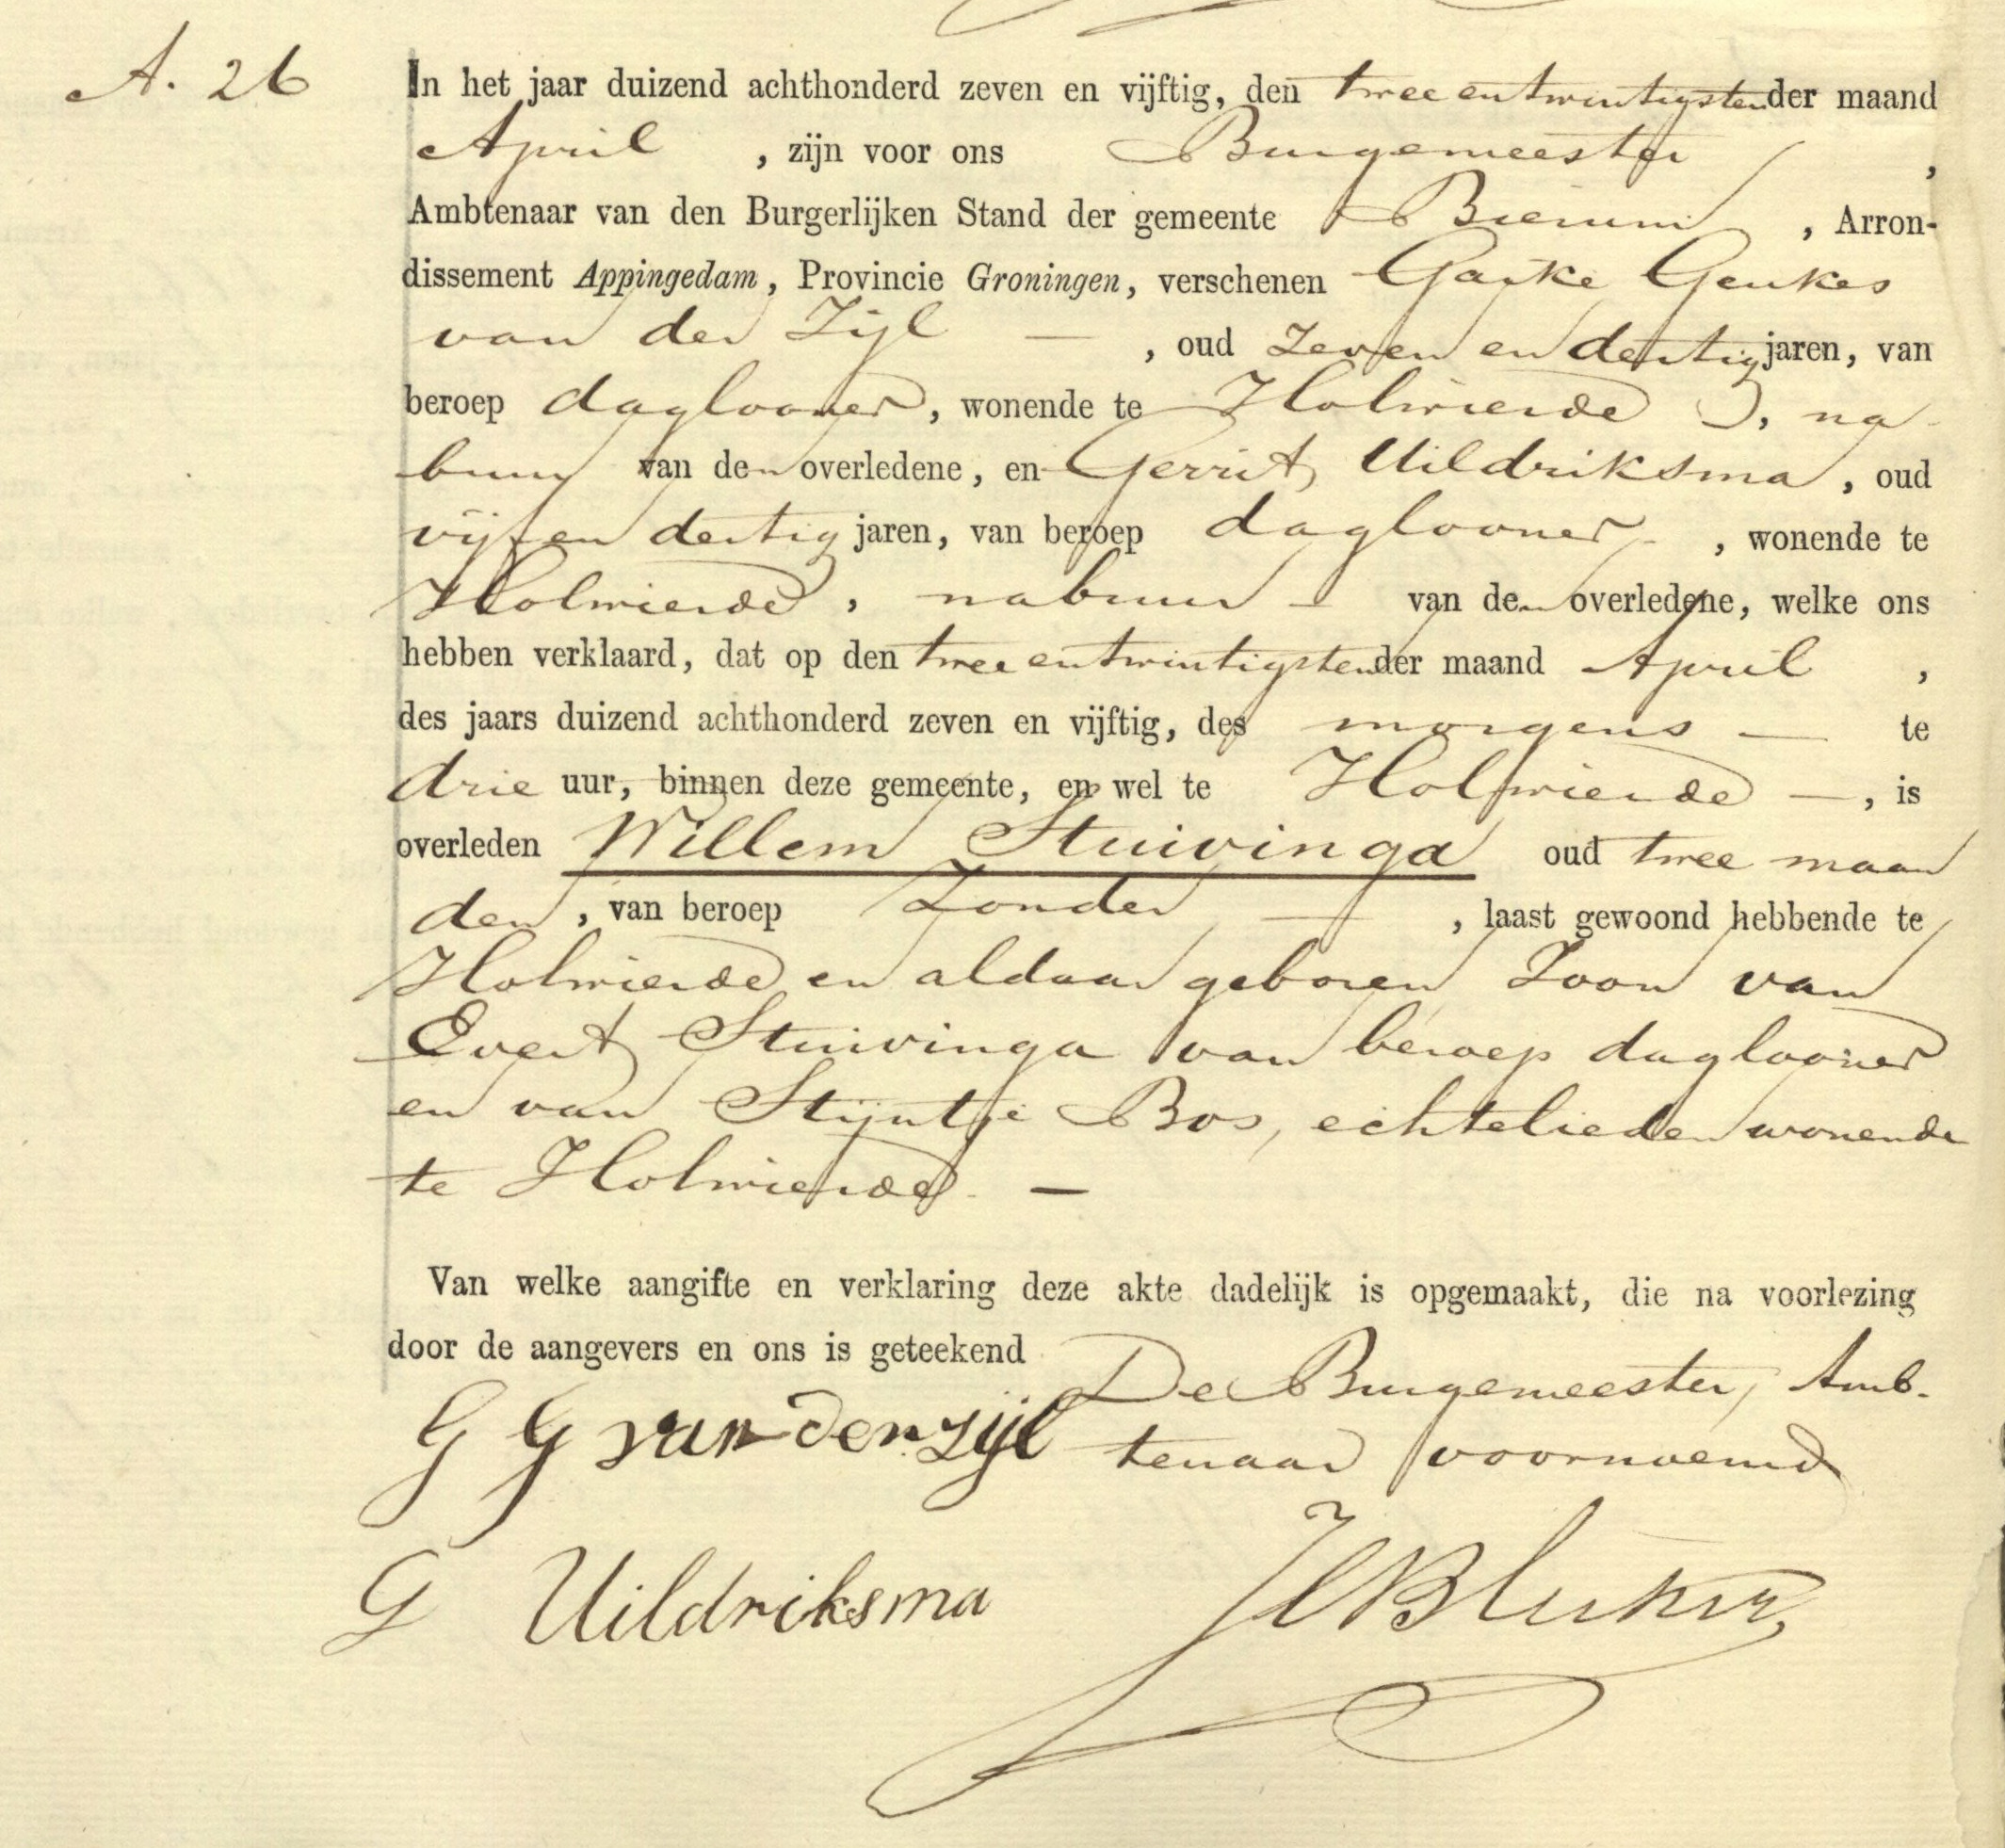 A. 26
In het jaar duizend achthonderd zeven en vijftig, den twee en twintigsten der maand
April , zijn voor ons Burgemeester ,
Ambtenaar van den Burgerlijken Stand der gemeente Bierum , Arron-
dissement Appingedam, Provincie Groningen, verschenen Geukes
van der Zijl — , oud zeven en dertig jaren, van
beroep daglooner, wonende te Holwierde , na-
buur van den overledene, en Gerrit Uildriksma, oud
vijf en dertig jaren, van beroep daglooner , wonende te
Holwierde, nabuur — van den overledene, welke ons
hebben verklaard, dat op den twee en twintigsten der maand April ,
des jaars duizend achthonderd zeven en vijftig, des morgens — te
drie uur, binnen deze gemeente, en wel te Holwierde —, is
overleden Willem Stuivinga oud twee maan
den, van beroep Zonder — , laast gewoond hebbende te
Holwierde en aldaar geboren Zoon van
Evert Stuivinga van beroep daglooner
en van Stijntje Bos, echtelieden wonende
te Holwierde. —
Van welke aangifte en verklaring deze akte dadelijk is opgemaakt, die na voorlezing
door de aangevers en ons is geteekend
De Burgemeester, Amb-
G G van der zijl tenaar voornoemd
G Uildriksma